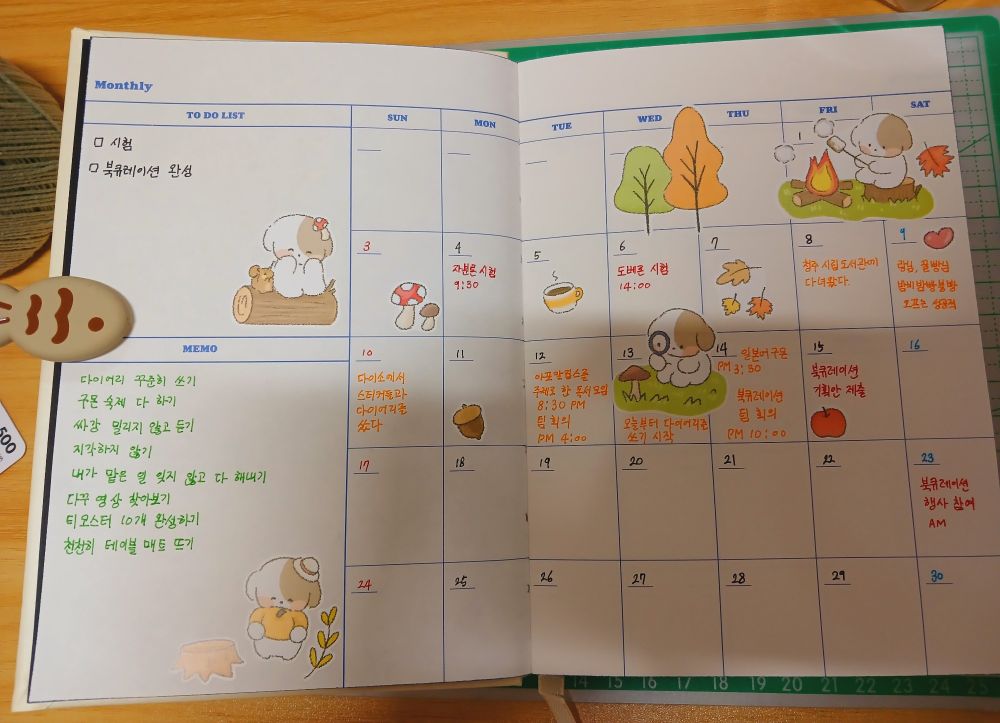 Monthly
TO DO LIST
SUN
MON
TUE
WED
THU
FRI
SAT
□ 시험
□ 북큐레이션 완성
1
3
4
자분론 시험
9:30
5
6
도베론 시험
14:00
7
8
청주 시립도서관에
다녀왔다.
9
오프는 성공적
MEMO
다이어리 꾸준히 쓰기
구몬 숙제 다 하기
싸강 밀리지 않고 듣기
지각하지 않기
내가 맡은 일 잊지 않고 다 해내기
다꾸 영상 찾아보기
티오스터 10개 완성하기
천천히 테이블 매트 뜨기
10
다이소에서
스티커들과
다이어리를
샀다
11
12
아포칼립스를
주제로 한 독서모임
8:30 PM
팀 회의
PM 4:00
13
오늘부터 다이어리를
쓰기 시작
14
일본어구몬
PM 3:30
북큐레이션
팀 회의
PM 10:00
15
북큐레이션
기획안 제출
16
17
18
19
20
21
22
23
북큐레이션
행사 참여
AM
24
25
26
27
28
29
30
500
14 15 16 17 18 19 20 21 22 23 24 25